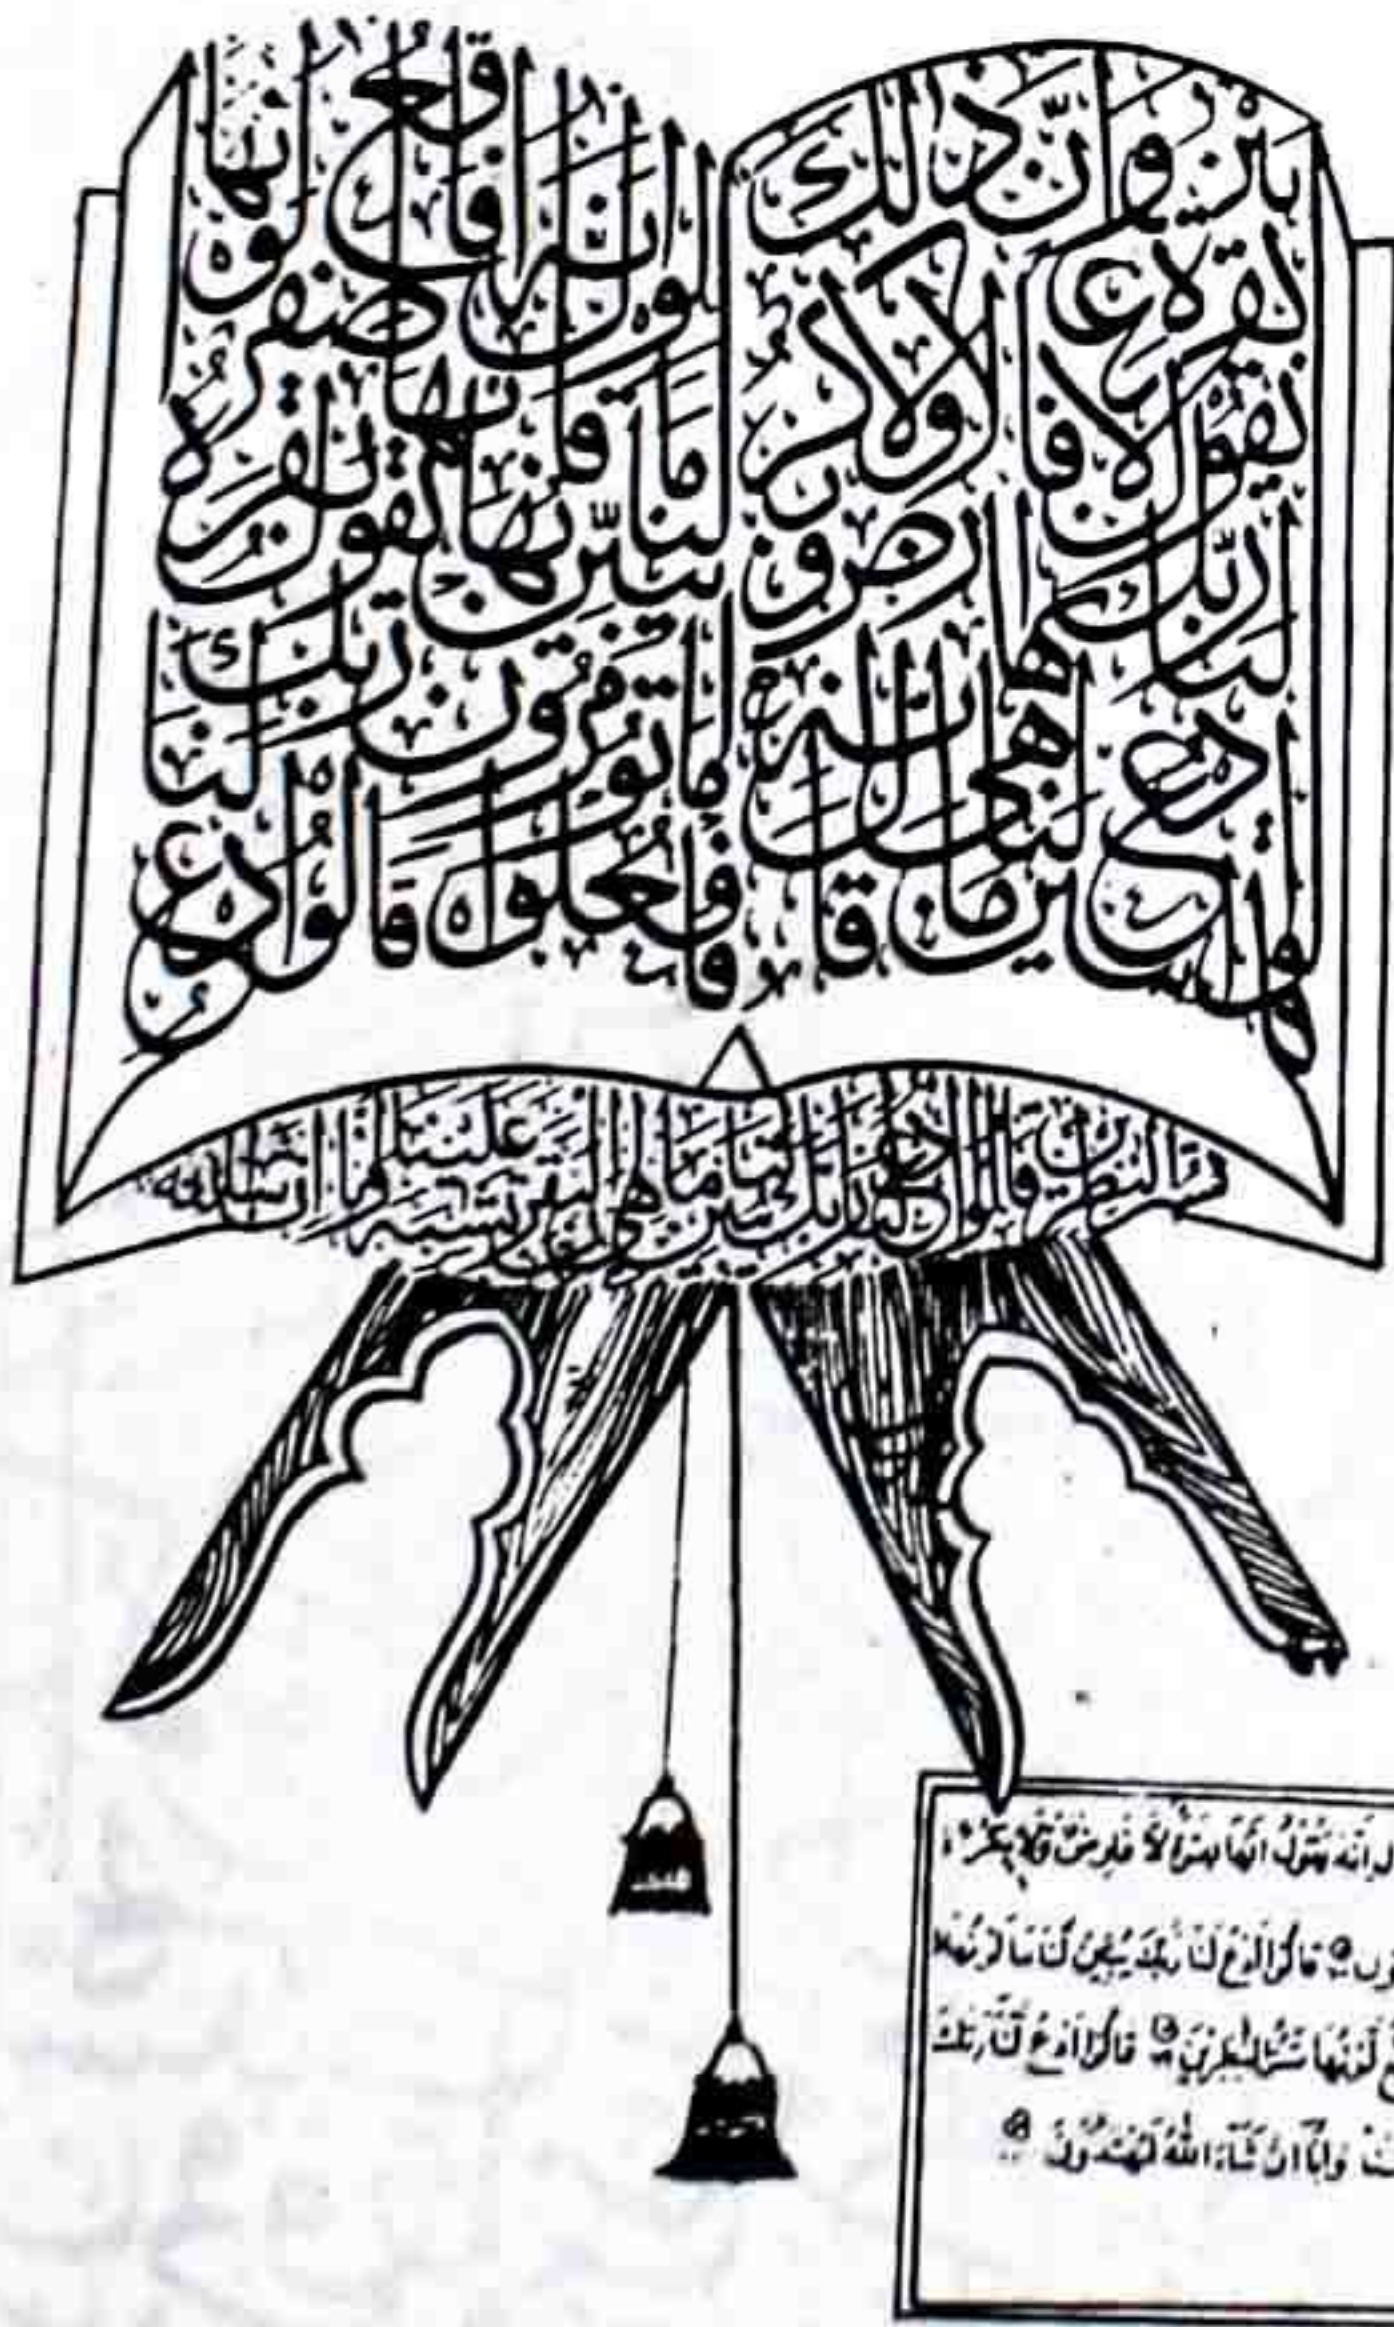 قالوا ادع لنا ربك يبين لنا ما هي قال انه يقول انها بقرة لا فارض ولا بكر عوان بين ذلك
فافعلوا ما تؤمرون قالوا ادع لنا ربك يبين لنا ما لونها قال انه يقول انها بقرة صفراء فاقع لونها
تسر النظرين قالوا ادع لنا ربك يبين لنا ما هي ان البقر تشبه علينا وانا ان شاء الله
ل انه يقول انها بقرة لا فارض ولا بكر
ون قالوا ادع لنا ربك يبين لنا ما لونها
ع لونها تسر النظرين قالوا ادع لنا ربك
نا وانا ان شاء الله لمهتدون